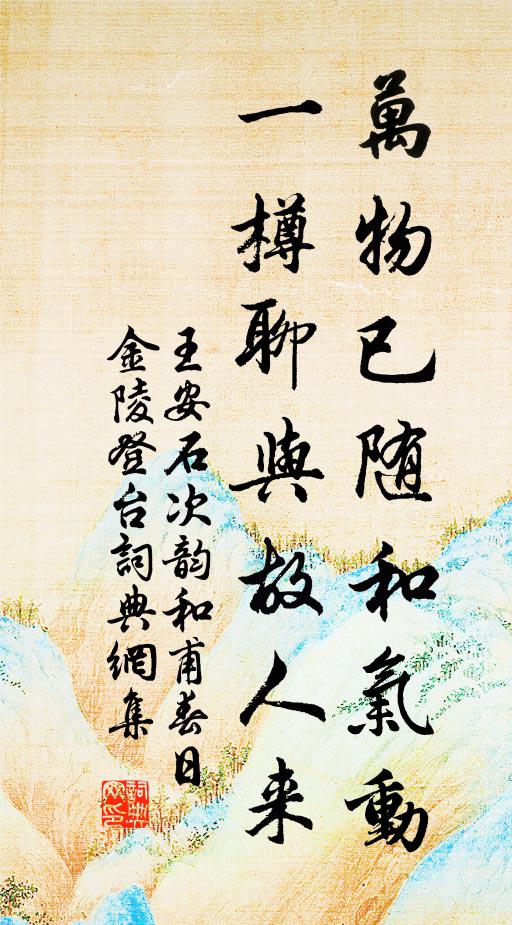 萬物已随和氣動
一樽聊與故人来
王安石次韵和甫春日
金陵登台詞典網集